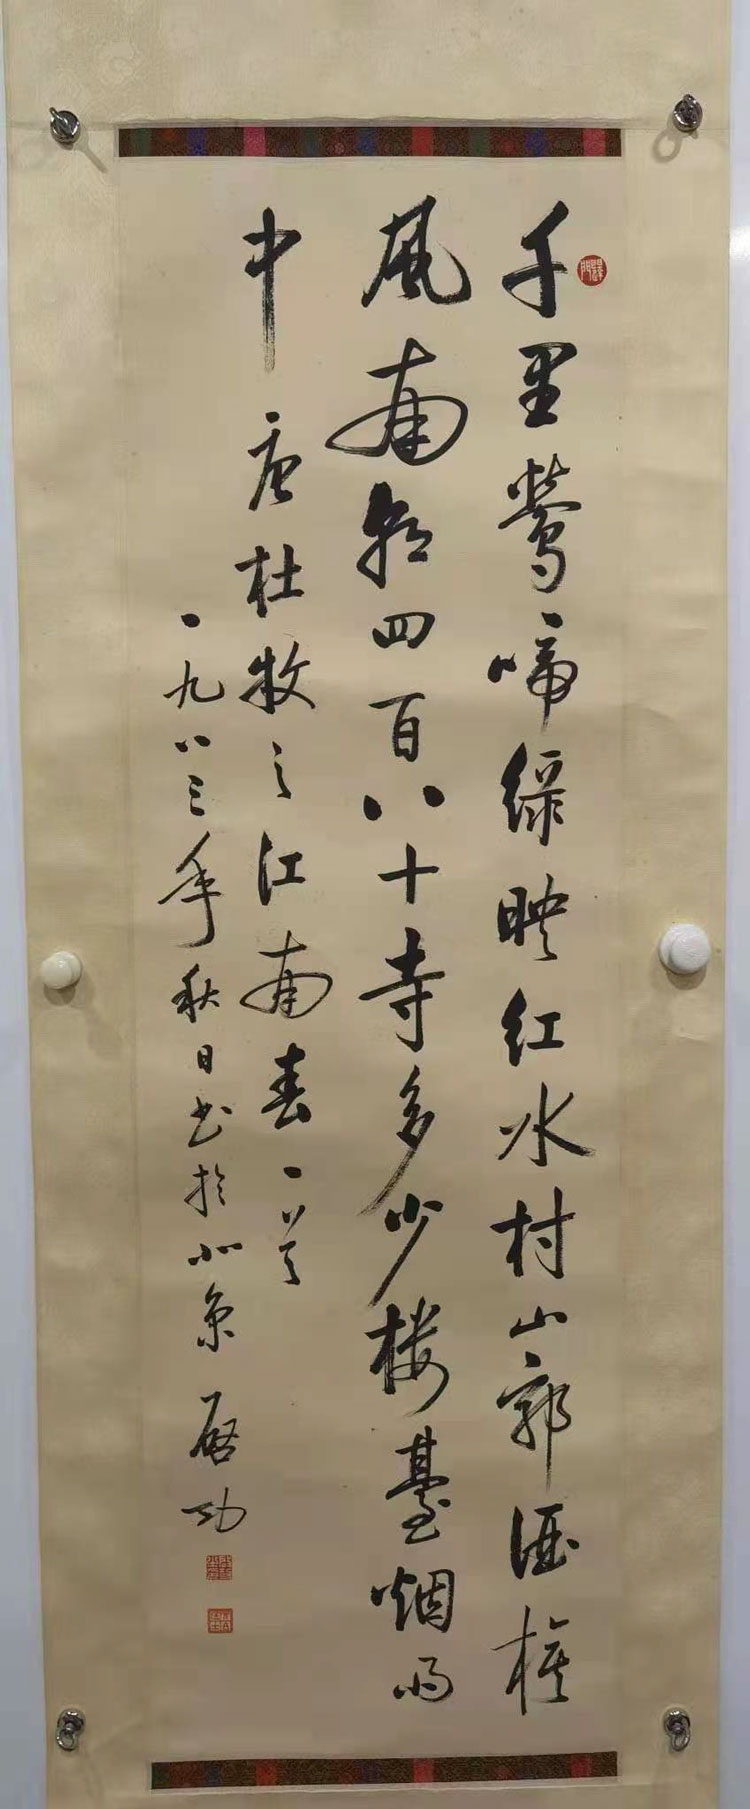 千里莺啼绿映红水村山郭酒旗
风南朝四百八十寺多少楼臺烟雨
中 唐杜牧之江南春一首
一九八三年秋日书於北京 启功